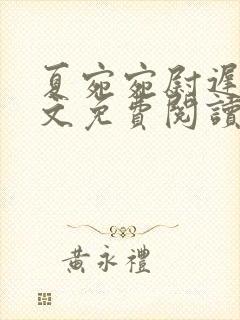 夏宛宛尉遲
文免費閱讀
黃永禮